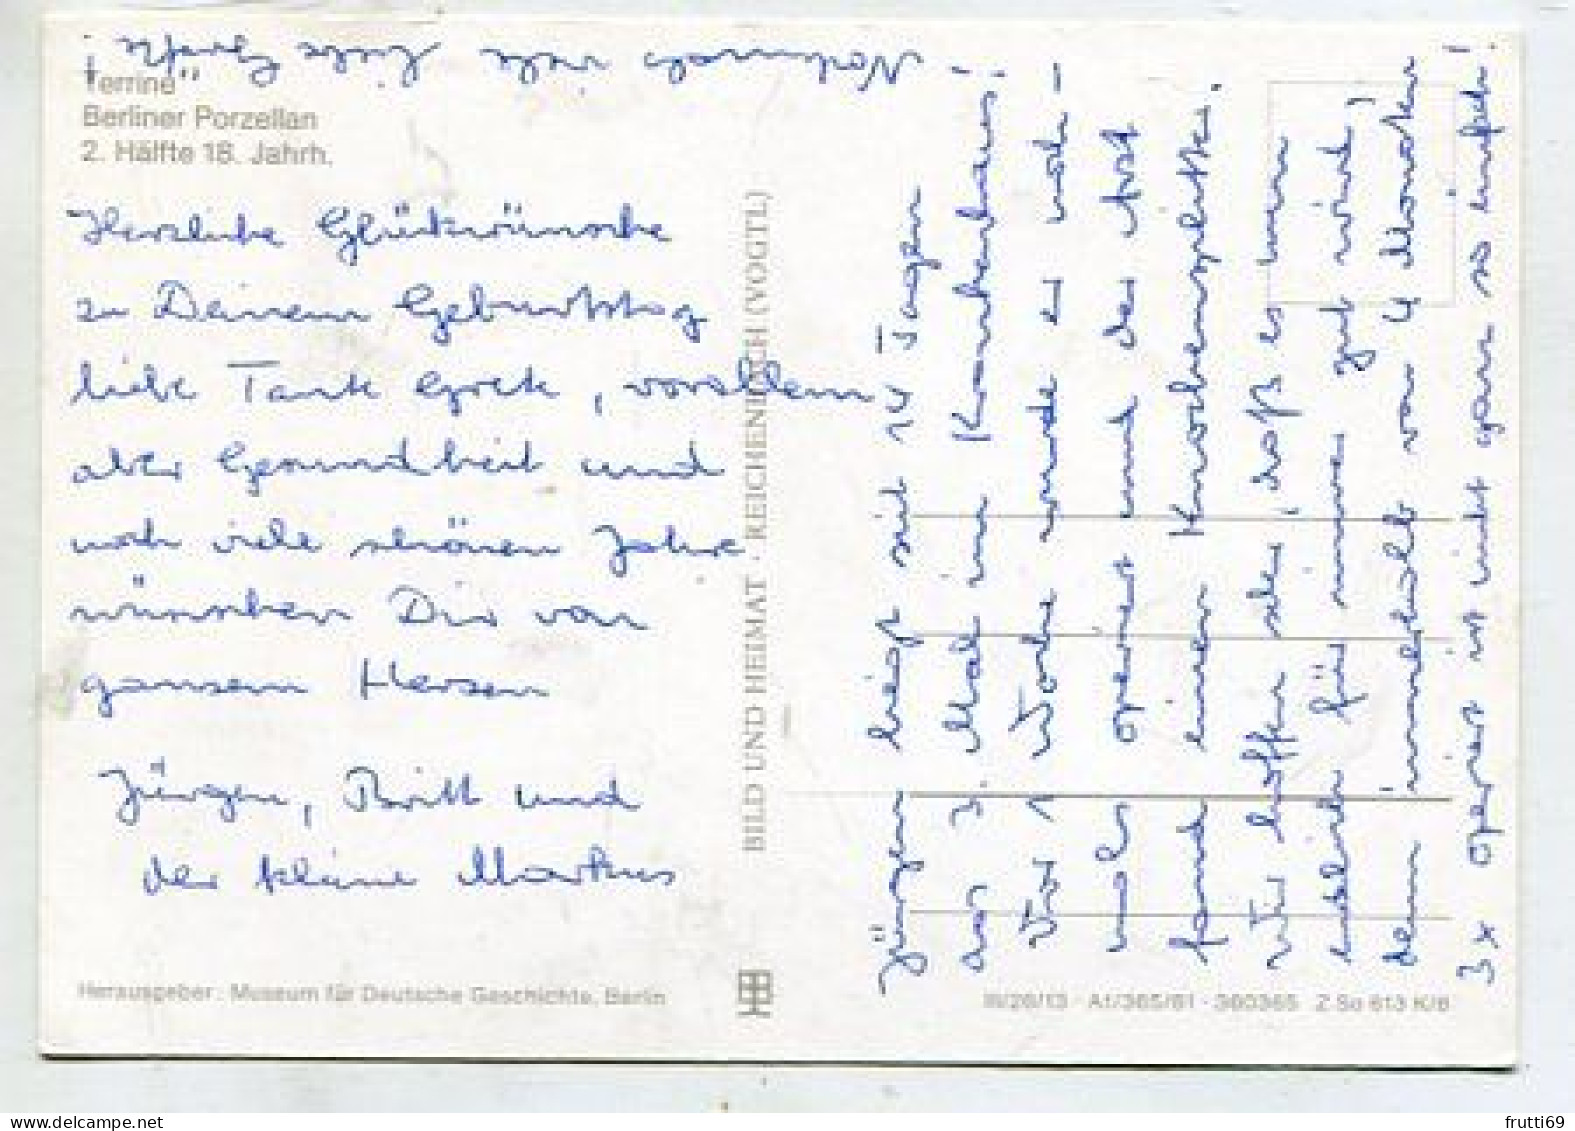 Nochmals viele liebe Grüße!
Terrine
Berliner Porzellan
2. Hälfte 18. Jahrh.
Herzliche Glückwünsche
zu Deinem Geburtstag
liebe Tante Grete, vorallem
aber Gesundheit und
noch viele schönen Jahre
wünschen Dir von
ganzem Herzen
Jürgen, Britt und
der kleine Markus
Herausgeber: Museum für Deutsche Geschichte, Berlin
BILD UND HEIMAT · REICHENBACH (VOGTL)
Jürgen liegt seit 14 Tagen
das 3. Mal im Krankenhaus!
Vor 1 Woche wurde er noch-
mals operiert und der Arzt
fand einen Knochensplitter.
Wir hoffen sehr, daß es nun
endlich für immer gut wird,
denn innerhalb von 4 Monaten
3x operiert ist nicht ganz so einfach!
III/26/13 · A1/365/81 · 360365 Z So 613 K/6
frutti69